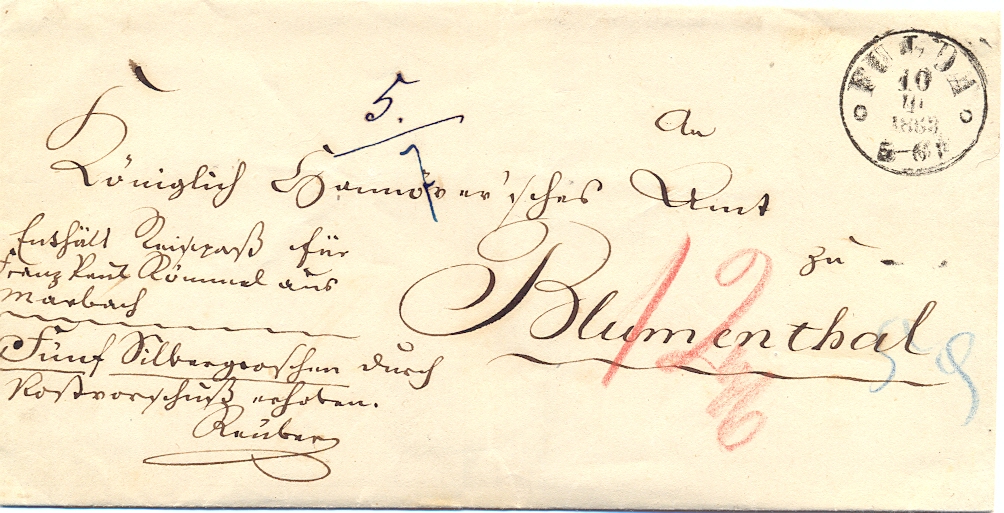 FULDA
10
1863
5.
7
An
Königlich Hannover'sches Amt
zu
Blumenthal
Enthält Reisepaß für
Franz Paul Kömmel aus
Marbach
Fünf Silbergroschen durch
Postvorschuß erhoben.
Reuber
12